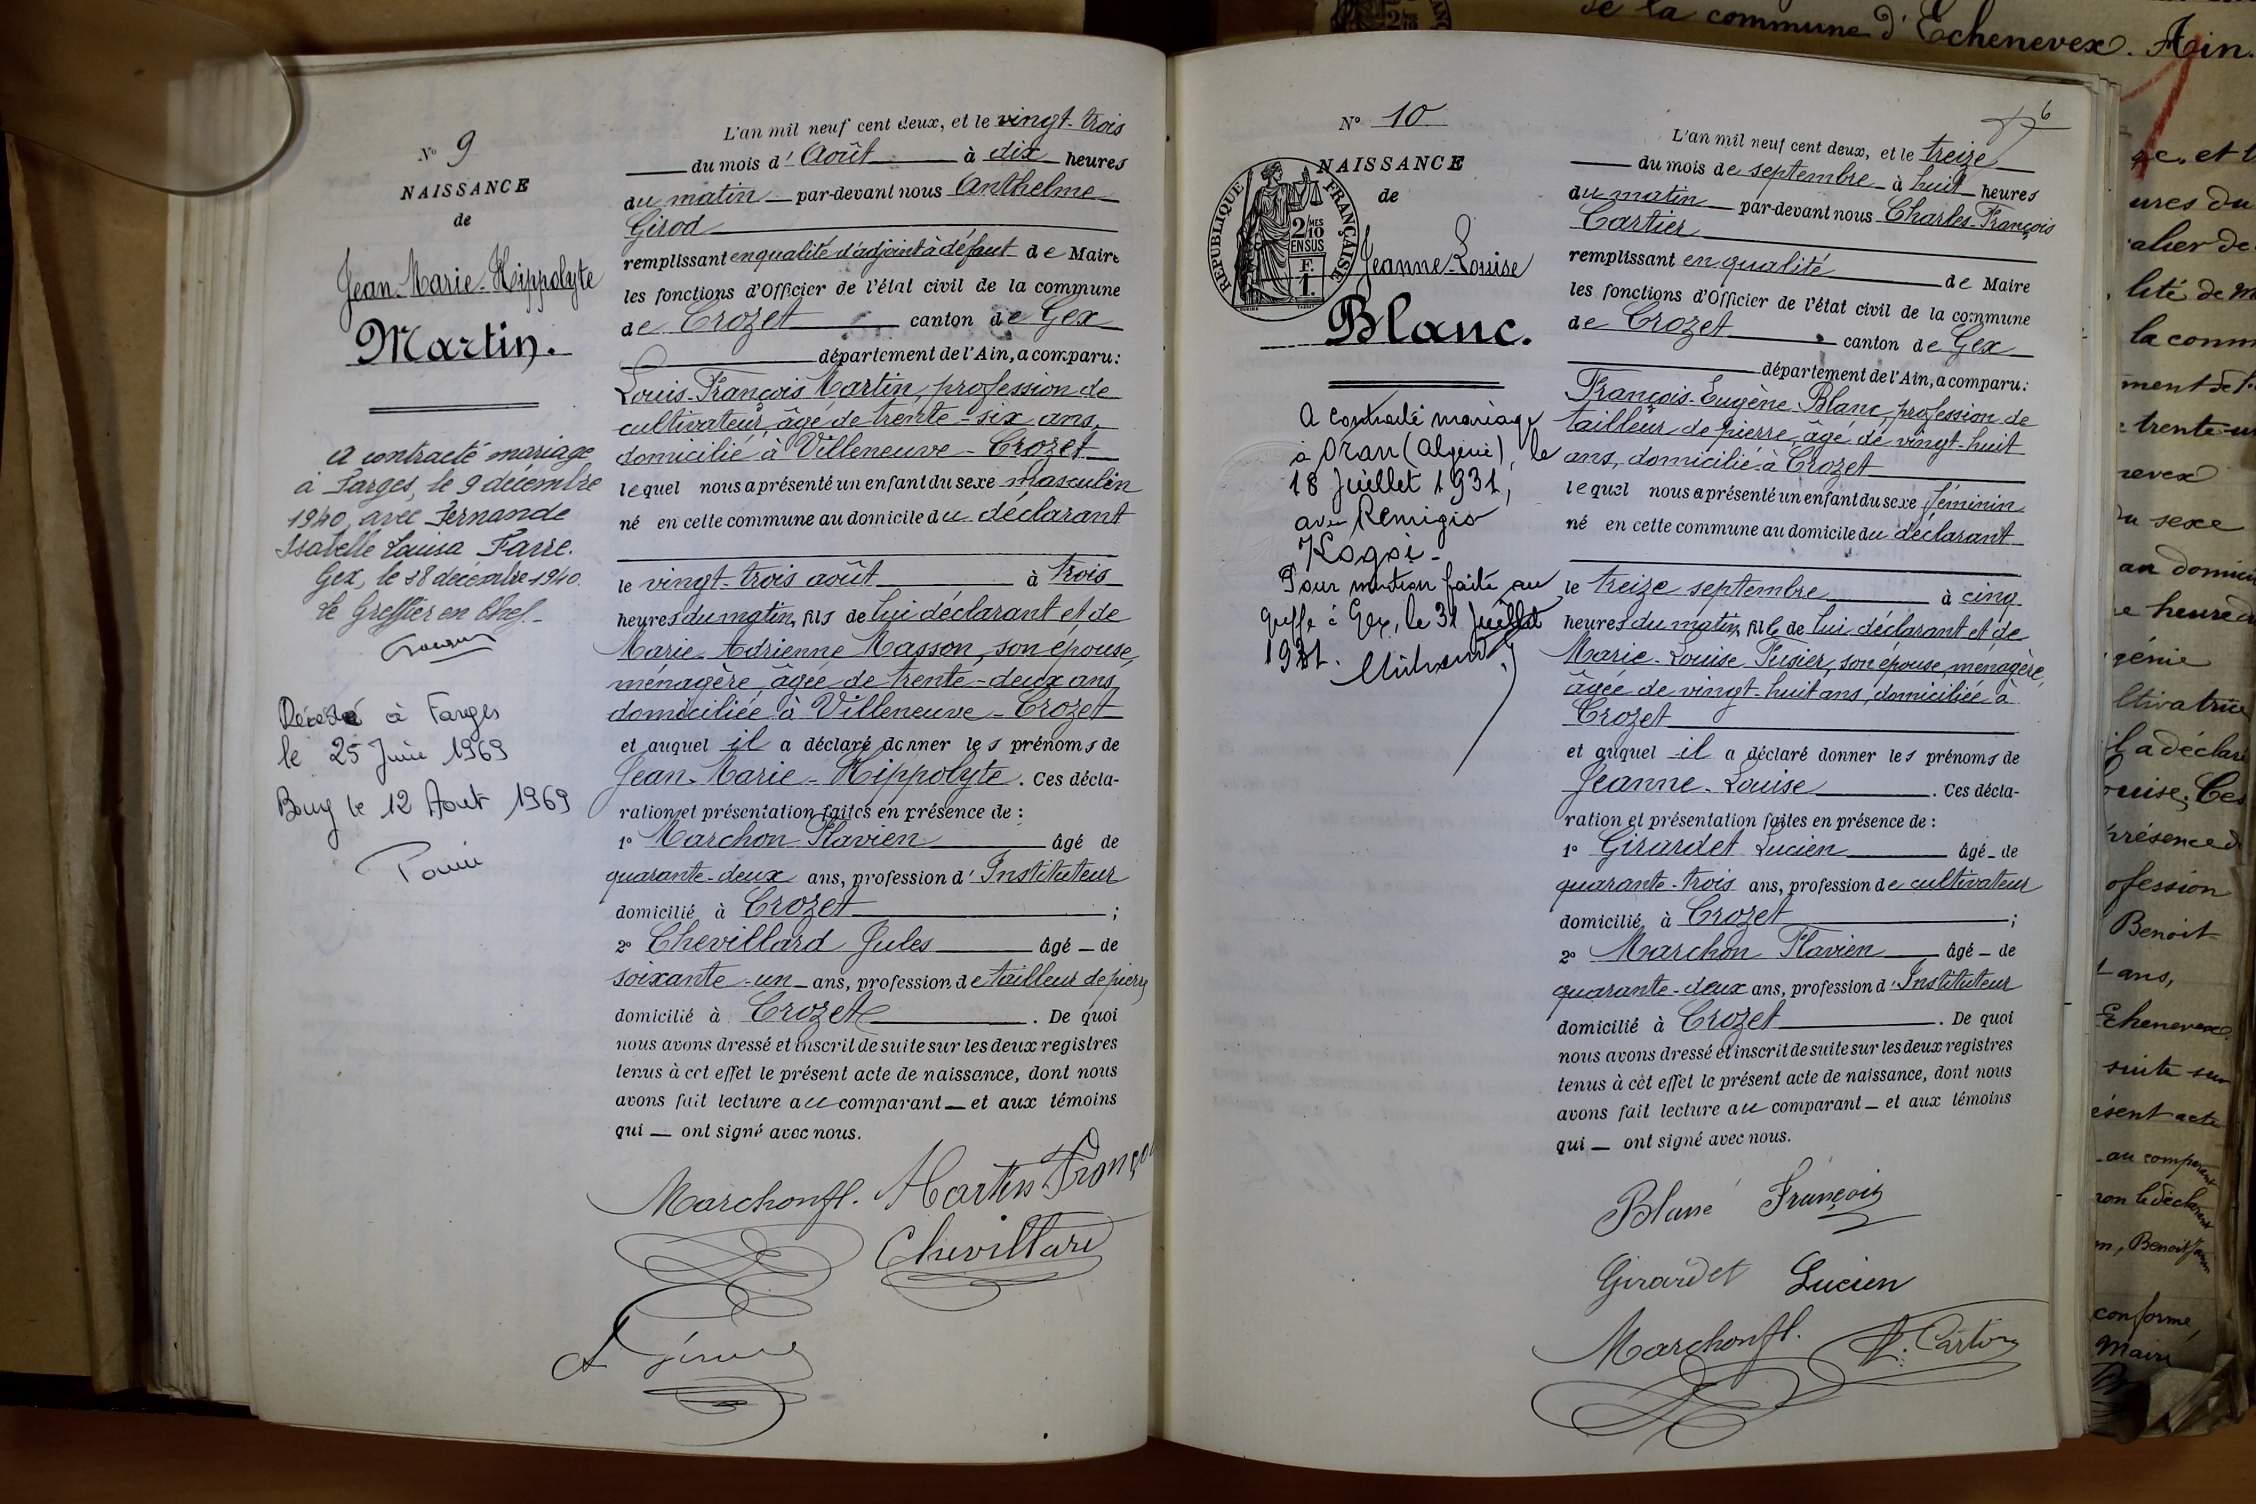 N° 9
NAISSANCE
de
Jean-Marie-Hippolyte
Martin.
A contracté mariage
à Farges, le 9 décembre
1940, avec Fernande
Isabelle Louisa Farre.
Gex, le 28 décembre 1940.
Le Greffier en Chef.
Décédé à Farges
le 25 Juin 1969
Bourg le 12 Aout 1969
L'an mil neuf cent deux, et le vingt-trois
du mois d'Août à dix heures
du matin par-devant nous Anthelme
Girod
remplissant en qualité d'adjoint à défaut de Maire
les fonctions d'Officier de l'état civil de la commune
de Crozet canton de Gex
département de l'Ain, a comparu:
Louis-François Martin, profession de
cultivateur, âgé de trente-six ans,
domicilié à Villeneuve-Crozet
lequel nous a présenté un enfant du sexe masculin
né en cette commune au domicile du déclarant
le vingt-trois août à trois
heures du matin, fils de lui déclarant et de
Marie-Adrienne Masson, son épouse,
ménagère, âgée de trente-deux ans,
domiciliée à Villeneuve-Crozet
et auquel il a déclaré donner les prénoms de
Jean-Marie-Hippolyte. Ces décla-
ration et présentation faites en présence de :
1° Marchon Flavien âgé de
quarante-deux ans, profession d'Instituteur
domicilié à Crozet ;
2° Chevillard Jules âgé de
soixante-un ans, profession de tailleur de pierre
domicilié à Crozet. De quoi
nous avons dressé et inscrit de suite sur les deux registres
tenus à cet effet le présent acte de naissance, dont nous
avons fait lecture au comparant et aux témoins
qui ont signé avec nous.
Marchon fl. Martin François
Chevillard
N° 10
NAISSANCE
de
REPUBLIQUE FRANÇAISE
2 MES
10
EN SUS
F.
1.
Jeanne-Louise
Blanc.
A contracté mariage
à Oran (Algérie), le
18 Juillet 1931,
avec Remigio
Pour mention faite au
greffe à Gex, le 31 Juillet
1931.
6
L'an mil neuf cent deux, et le treize
du mois de septembre à huit heures
du matin par-devant nous Charles-François
Cartier
remplissant en qualité de Maire
les fonctions d'Officier de l'état civil de la commune
de Crozet canton de Gex
département de l'Ain, a comparu:
François-Eugène Blanc, profession de
tailleur de pierre, âgé de vingt-huit
ans, domicilié à Crozet
lequel nous a présenté un enfant du sexe féminin
né en cette commune au domicile du déclarant
le treize septembre à cinq
heures du matin, fille de lui déclarant et de
Marie-Louise Fusier, son épouse, ménagère,
âgée de vingt-huit ans, domiciliée à
Crozet
et auquel il a déclaré donner les prénoms de
Jeanne-Louise. Ces décla-
ration et présentation faites en présence de :
1° Girardet Lucien âgé de
quarante-trois ans, profession de cultivateur
domicilié à Crozet ;
2° Marchon Flavien âgé de
quarante-deux ans, profession d'Instituteur
domicilié à Crozet. De quoi
nous avons dressé et inscrit de suite sur les deux registres
tenus à cet effet le présent acte de naissance, dont nous
avons fait lecture au comparant et aux témoins
qui ont signé avec nous.
Blanc François
Girardet Lucien
Marchon fl.
de la commune d'Echenevex. Ain.
ures du
la comm
trente-un
nevex
du sexe
au domici
heure d
génie
ltivatrice
il a déclaré
ouise. Ces
présence d
ofession
Benoit
ans,
Echenevex.
suite sur
ésent acte
au comparant
conforme,
Maire